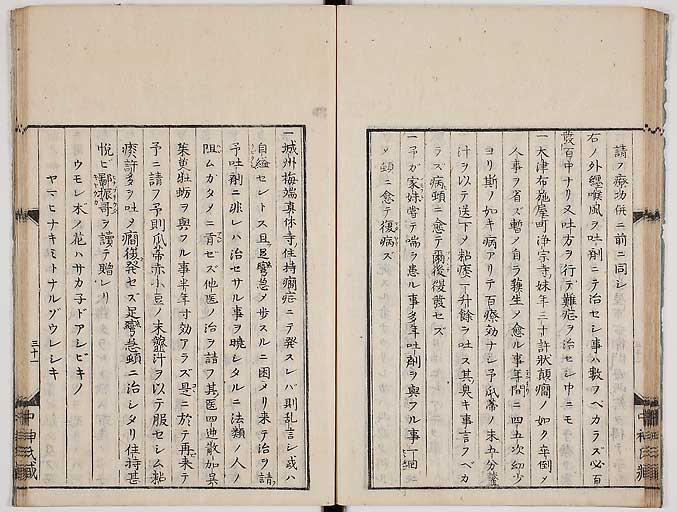 請フ療功併ニ前ニ同シ
右ノ外纏喉風ヲ吐剤ニテ治セシ事ハ数ヲベカラズ必百
發百中ナリ又吐方ヲ行テ難症ヲ治セシ中ニモ
一大津布施屋町浄宗寺妹年三十許状顛癇ノ如ク卒倒メ
人事ヲ省ズ暫メ自ラ穌生メ愈ル事年間ニ四五次幼少
ヨリ斯ノ如キ病アリテ百療効ナシ予瓜蔕ノ末五分韲
汁ヲ以テ送下メ粘痰一升餘ヲ吐ス其臭キ事言フベカ
ラズ病頓ニ愈テ爾後復發セズ
一予ガ家妹嘗テ喘ヲ患ル事多年吐剤ヲ與フル事一回
メ頓ニ愈テ復病ズ
一城州梅端真休寺住持癇症ニテ発スレバ則乱言シ或ハ
自縊セントス且足彎急メ歩スルニ困メリ来テ治ヲ請
予吐剤ニ非レハ治セサル事ヲ曉シタルニ法類ノ人ノ
阻ムガタメニ肯セズ他医ノ治ヲ請フ其医四逆散加呉
茱萸牡蛎ヲ與フル事半年寸効アラズ是ニ於テ再来テ
予ニ請フ予則瓜蔕赤小豆ノ末韲汁ヲ以テ服セシム粘
痰許多ヲ吐メ癇復発セズ足彎急頓ニ治シタリ住持甚
悦ビ
振哥ヲ讀テ贈レリ
ウモレ木ノ花ハサカ子ドアシビキノ
ヤマヒナキミトナルゾウレシキ
三十一
中神氏蔵
中神氏蔵